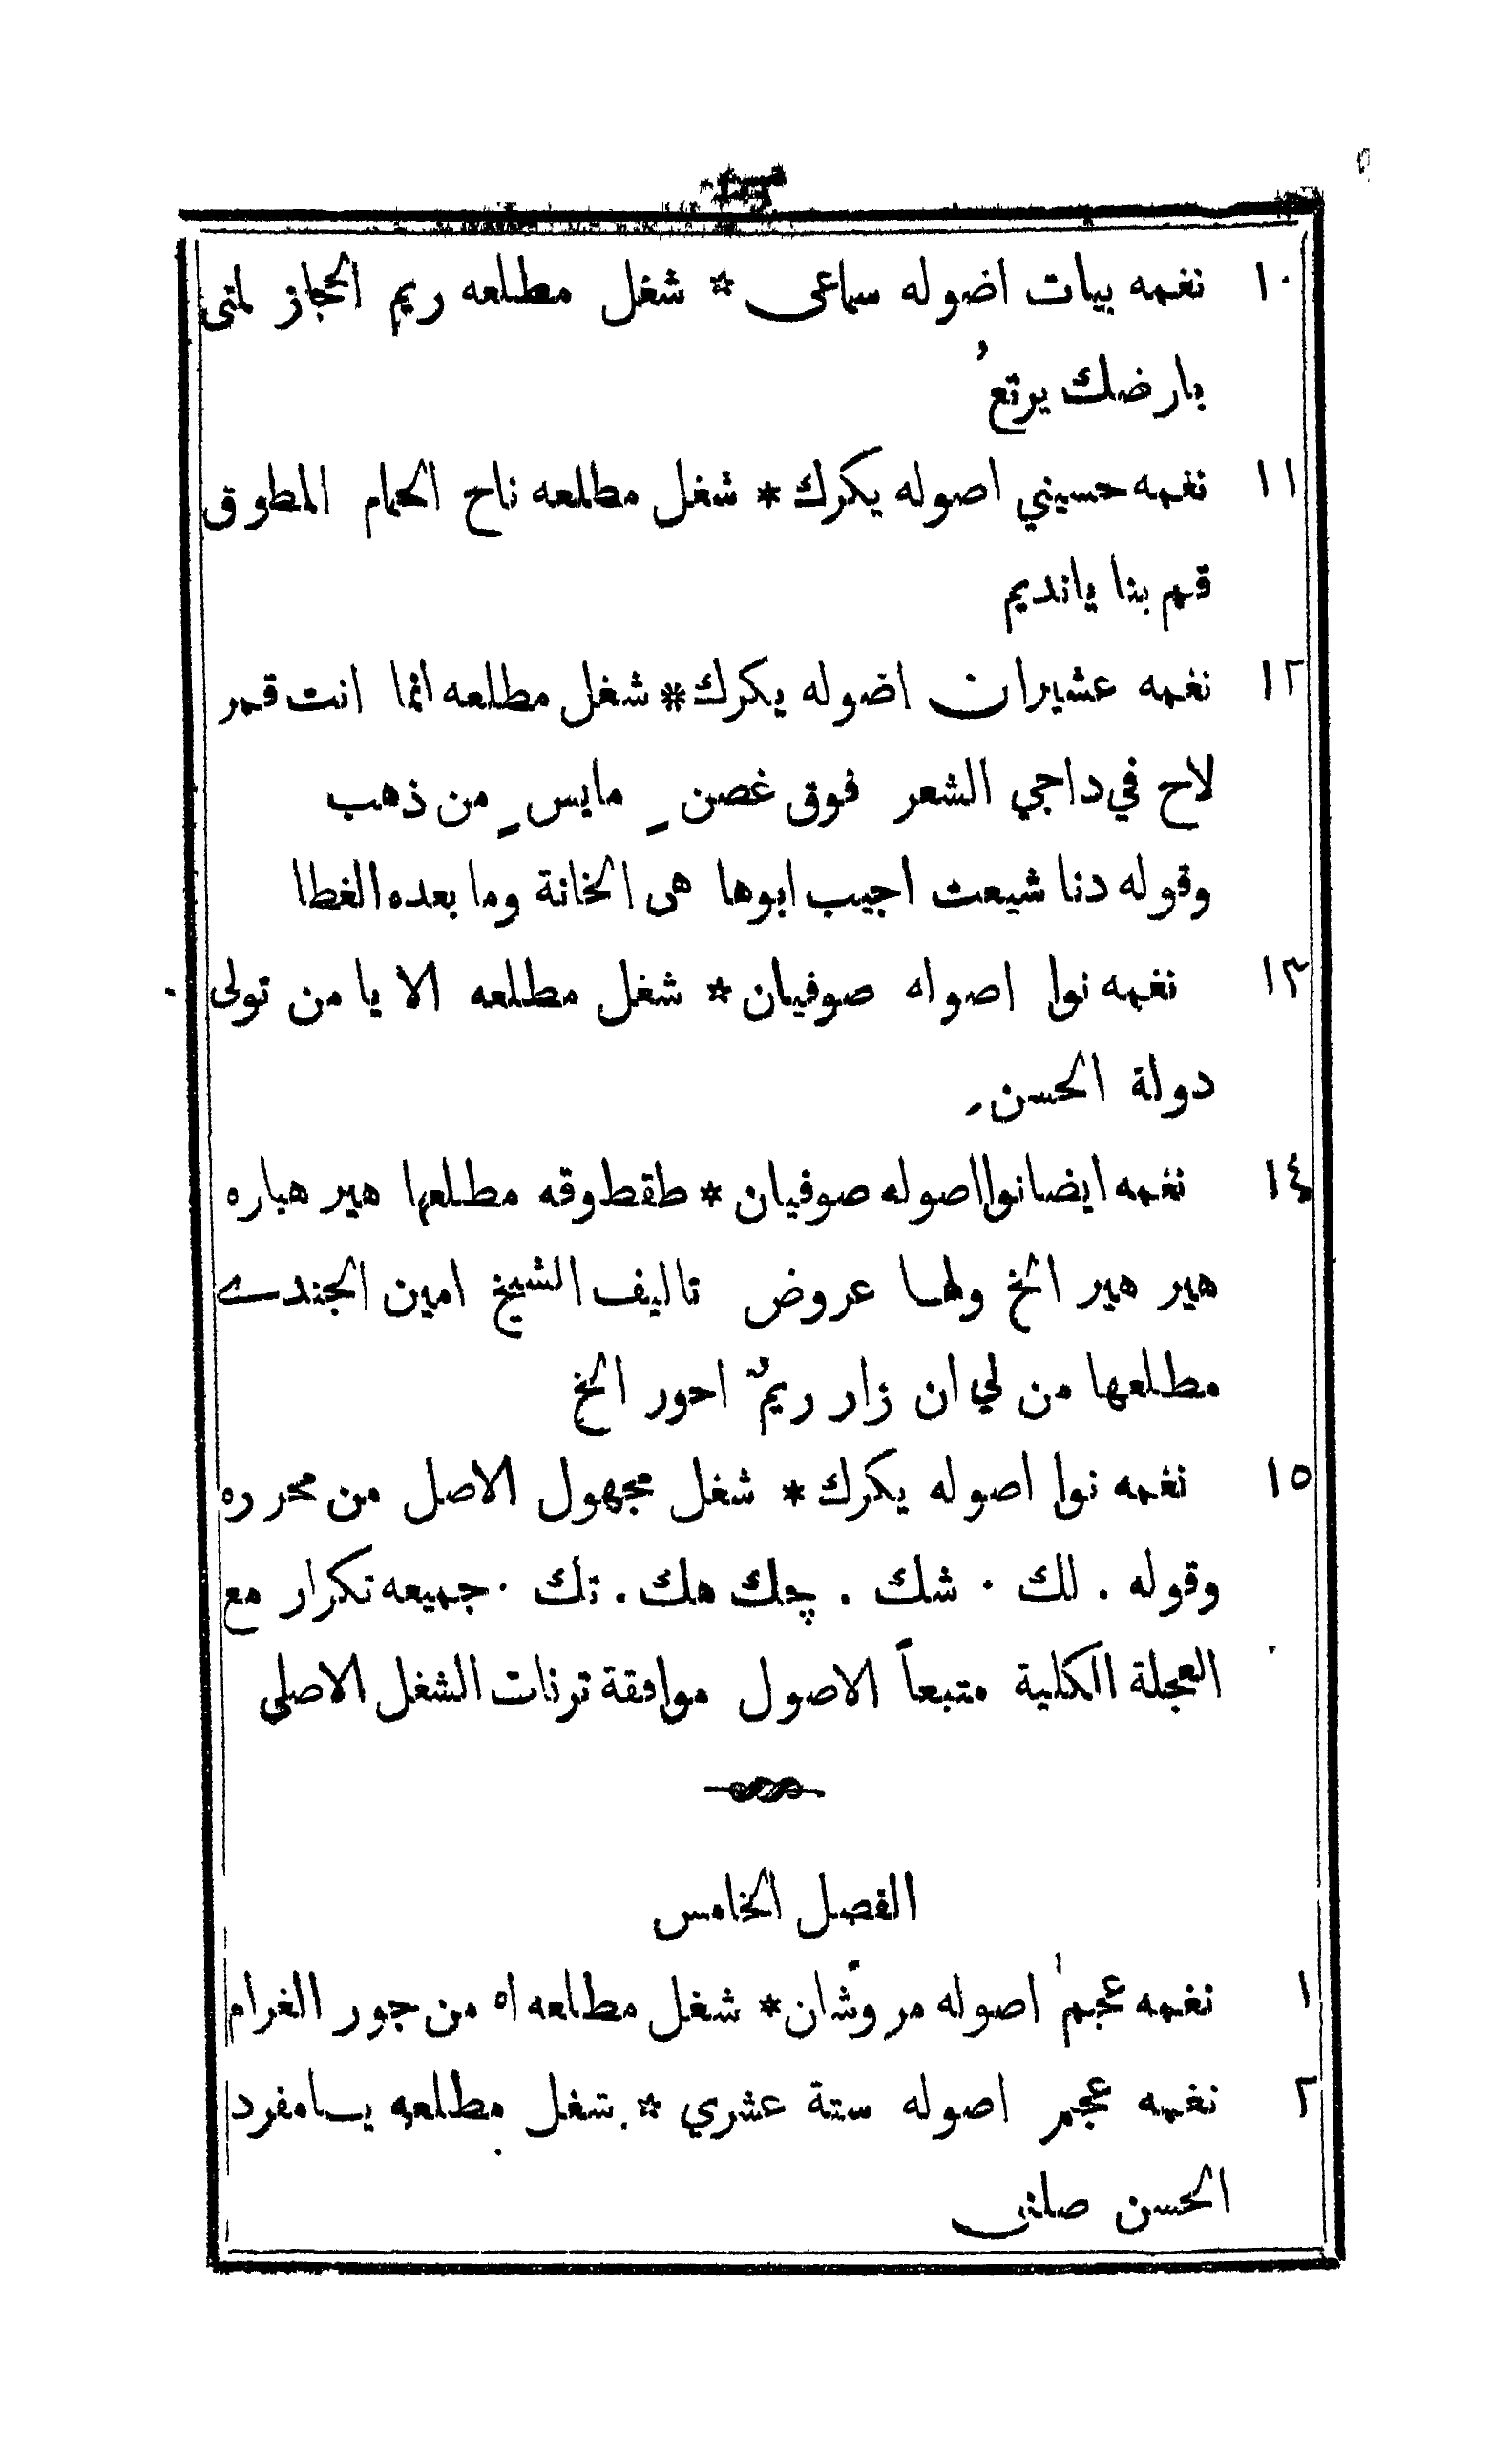 ١٠ نغمه بيات اضوله سماعى * شغل مطلعه ريم الحجاز لمتى
بارضك يرتعُ
١١ نغمه حسيني اصوله يكرك * شغل مطلعه ناح الحمام المطوق
قم بنا يانديم
١٢ نغمه عشيران اضوله يكرك * شغل مطلعه انما انت قمر
لاح في داجي الشعر فوق غصنٍ مايسٍ من ذهب
وقوله دنا شيعت اجيب ابوها هى الخانة وما بعده الغطا
١٣ نغمه نوا اصوله صوفيان * شغل مطلعه الا يا من تولى
دولة الحسنِ
١٤ نغمه ايضا نوا اصوله صوفيان * طقطوقه مطلعها هير هباره
هير هير الخ ولها عروض تاليف الشيخ امين الجندے
مطلعها من لي ان زار ريمٌ احور الخ
١٥ نغمه نوا اصوله يكرك * شغل مجهول الاصل من محرره
وقوله . لك . شك . چك هك . تك . جميعه تكرار مع
العجلة الكلية متبعاً الاصول موافقة ترنات الشغل الاصلى
الفصل الخامس
١ نغمه عجم اصوله مر وشان * شغل مطلعه اه من جور الغرام
٢ نغمه عجم اصوله ستة عشري * شغل مطلعه يا مفرد
الحسن صلنى